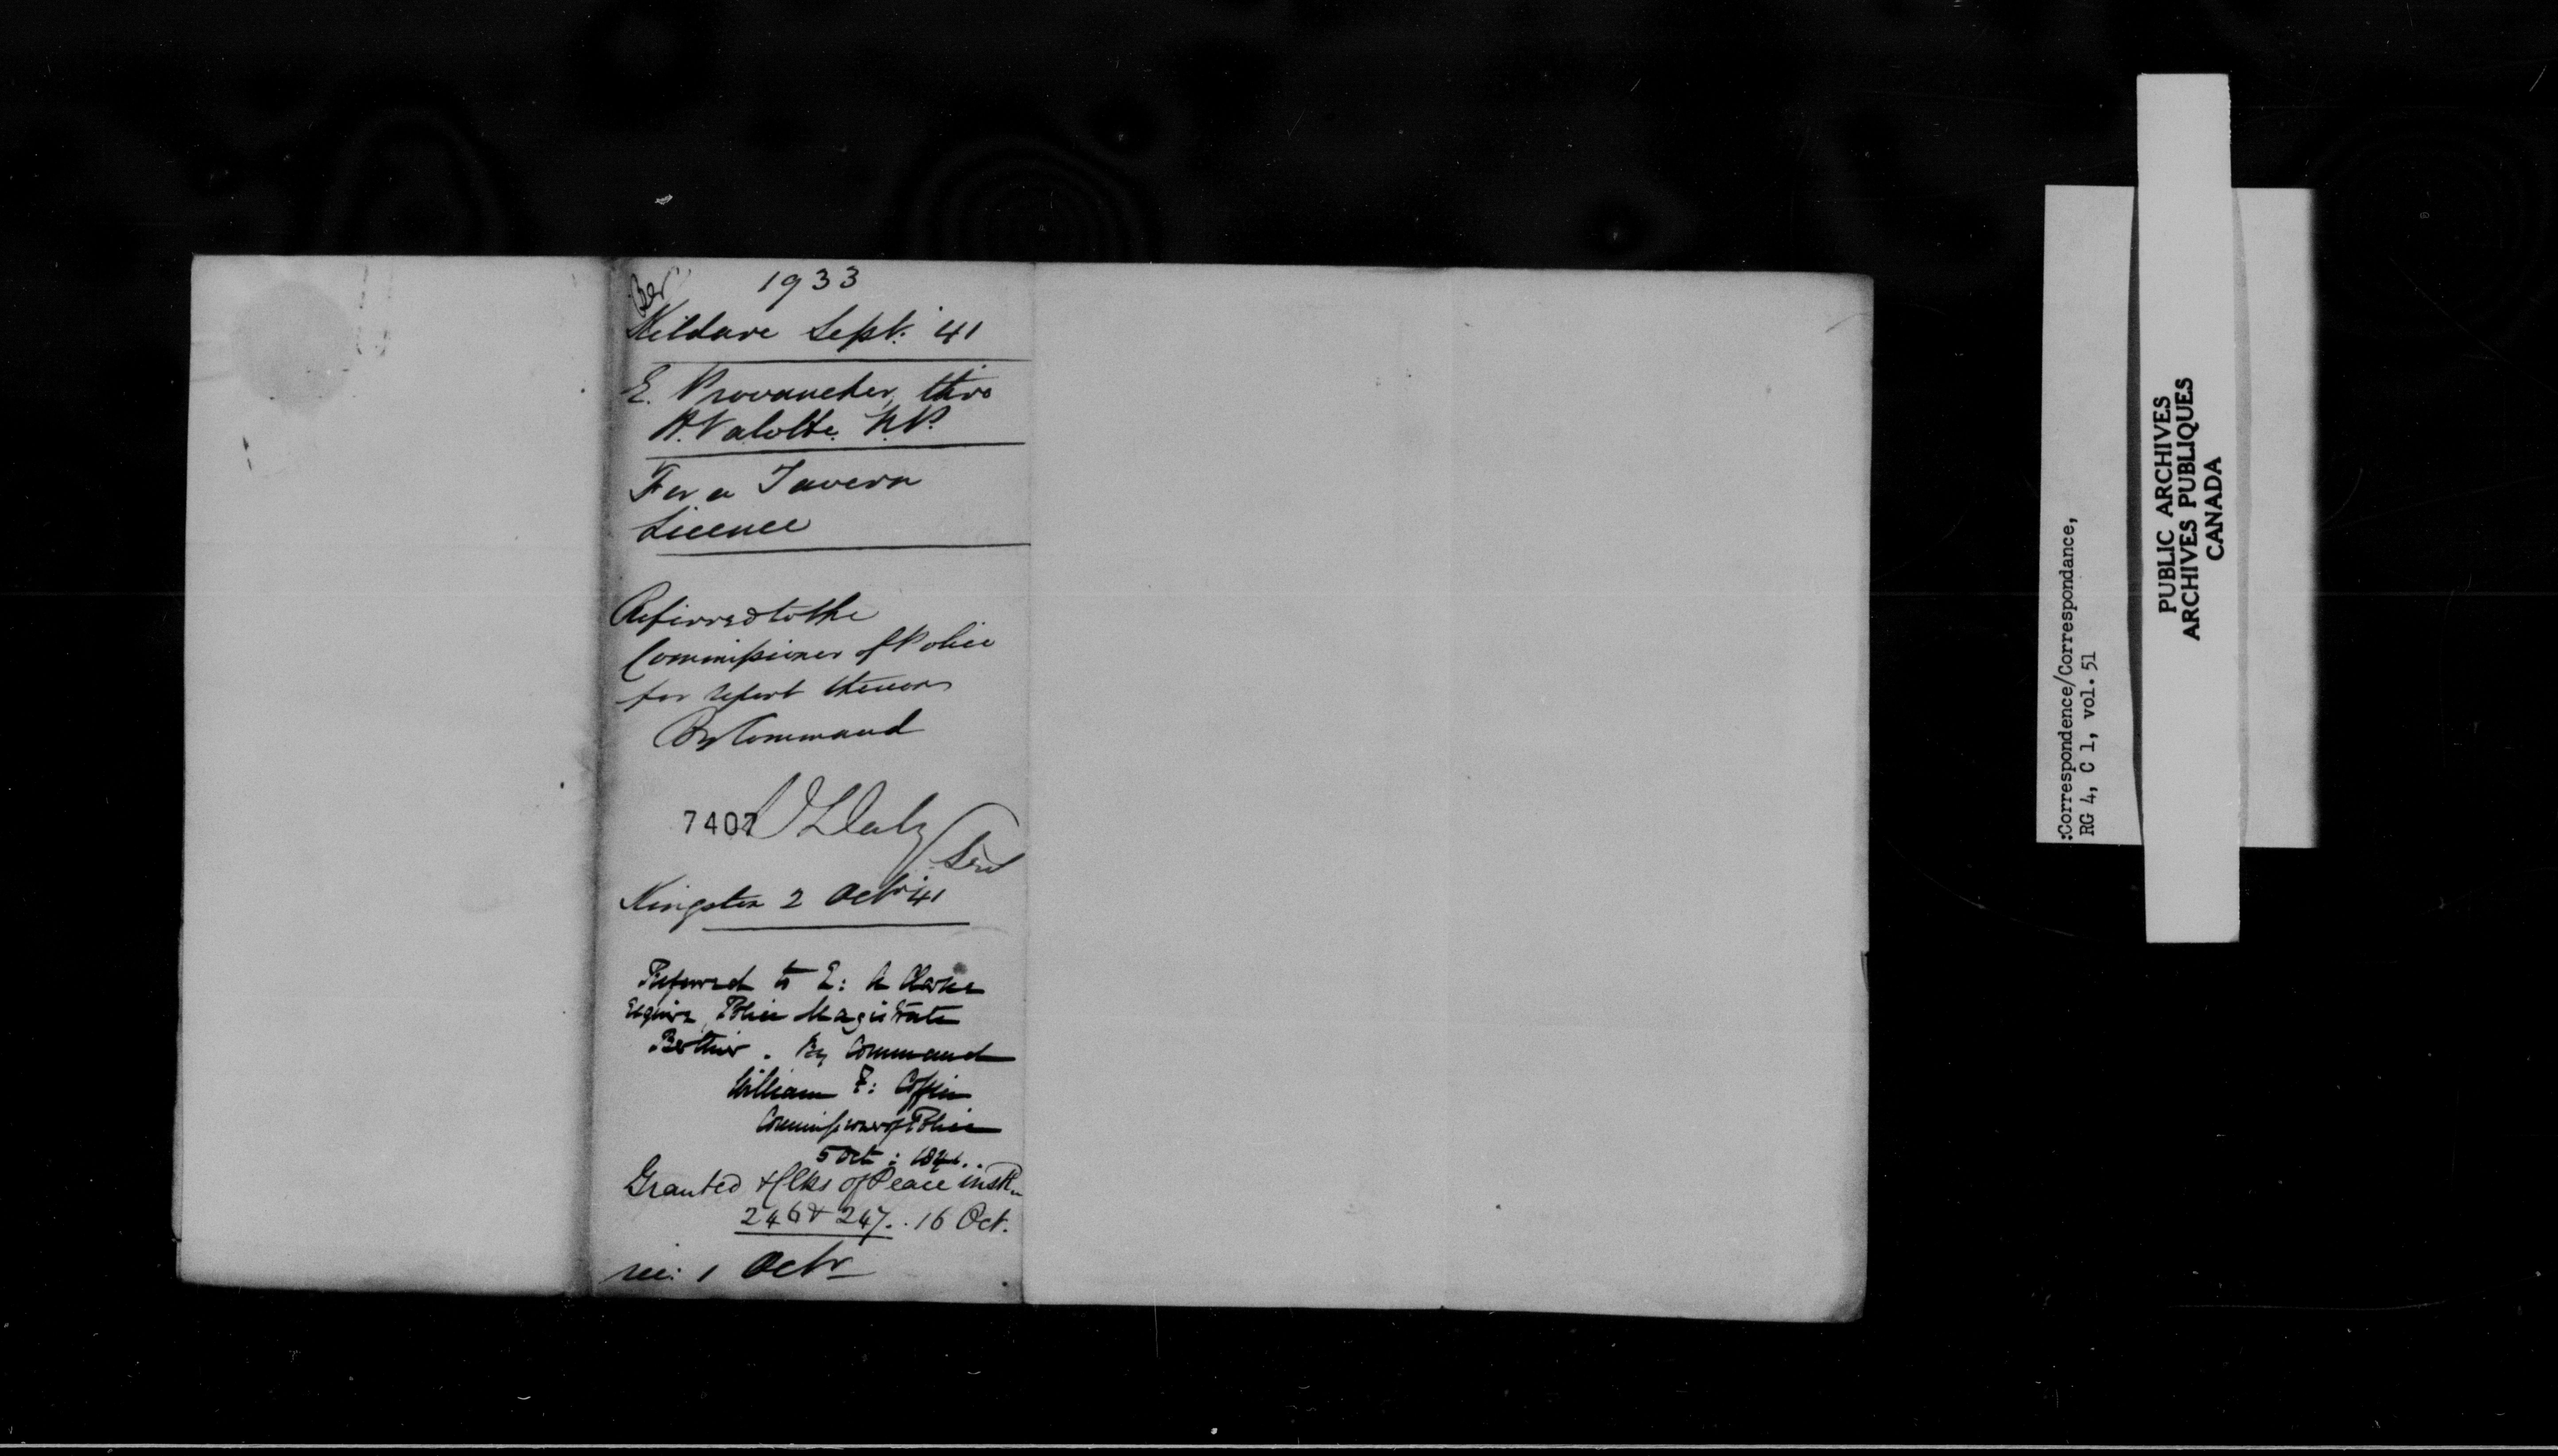 Ber
1933
Kildare Sept. 41
E. Provancher, thro
N.P.
For a Tavern
Licence
Referred to the
Commissioner of Police
for report thereon
By Command
7407 D Daly
Kingston 2 Octr 41
Referred to E: Clarke
Esquire, Police Magistrate
Berthier. By Command
William F: Coffin
Commissioner of Police
5 Oct: 1841.
Granted & Clks of Peace
246 & 247. 16 Oct.
rec: 1 Octr
:Correspondence/Correspondance,
RG 4, C 1, vol. 51
PUBLIC ARCHIVES
ARCHIVES PUBLIQUES
CANADA